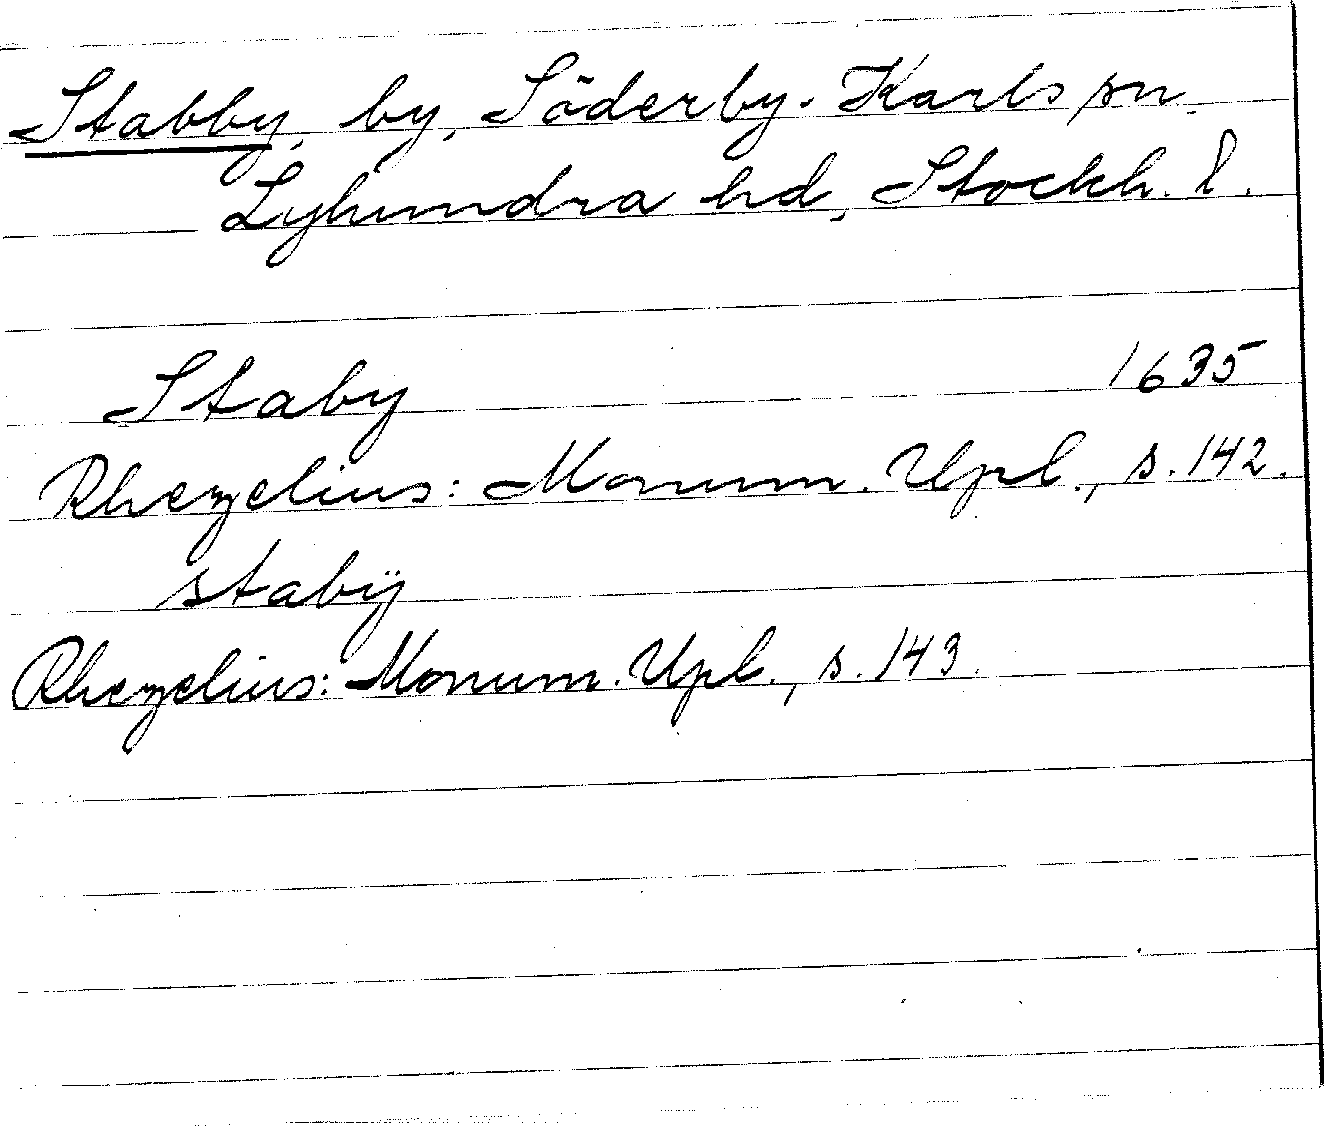 Stabby, by, Söderby-Karls sn.
Lyhundra hd, Stockh. l.
Staby 1635
Rhezelius: Monum. Upl., s. 142.
stabÿ
Rhezelius: Monum. Upl., s. 143.